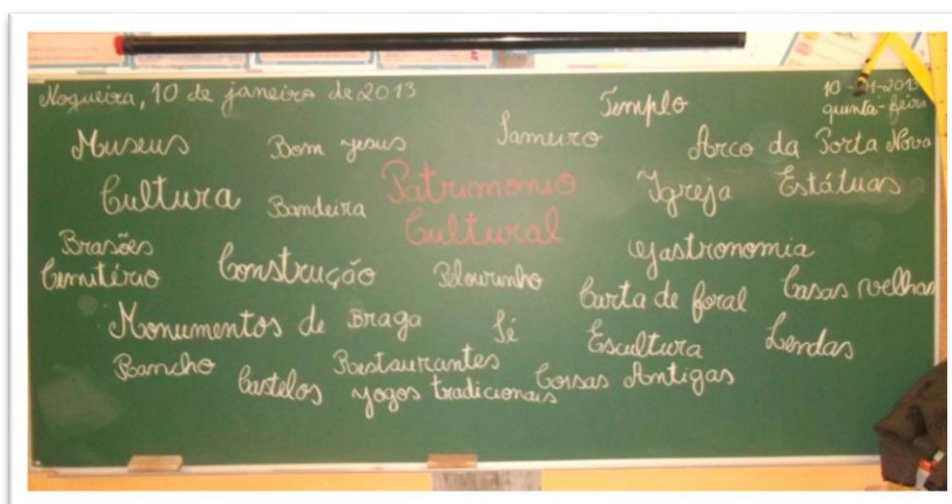 Nogueira, 10 de janeiro de 2013
10-01-201
quinta-feira
Templo
Museus Bom Jesus Sameiro Arco da Porta Nova
Cultura Bandeira Patrimonio Igreja Estátuas
Cultural
Brasões
Cemitério Construção Pelourinho Gastronomia
Carta de foral Casas velhas
Monumentos de Braga Sé Escultura Lendas
Rancho Restaurantes
Castelos yogos tradicionais Coisas Antigas